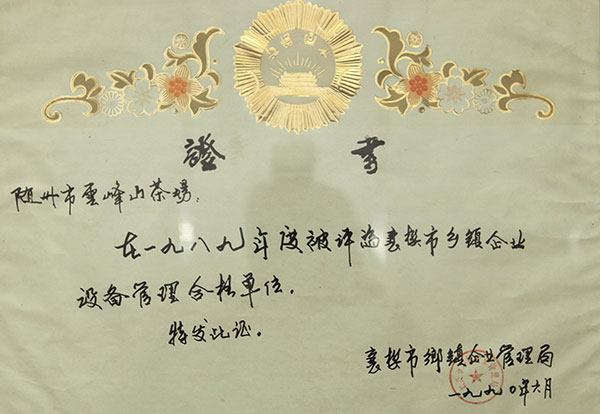 證書
随州市雲峰山茶場：
在一九八九年度被评为襄樊市乡镇企业
设备管理合格单位．
特发此证．
襄樊市鄉鎮企业管理局
一九九〇年六月